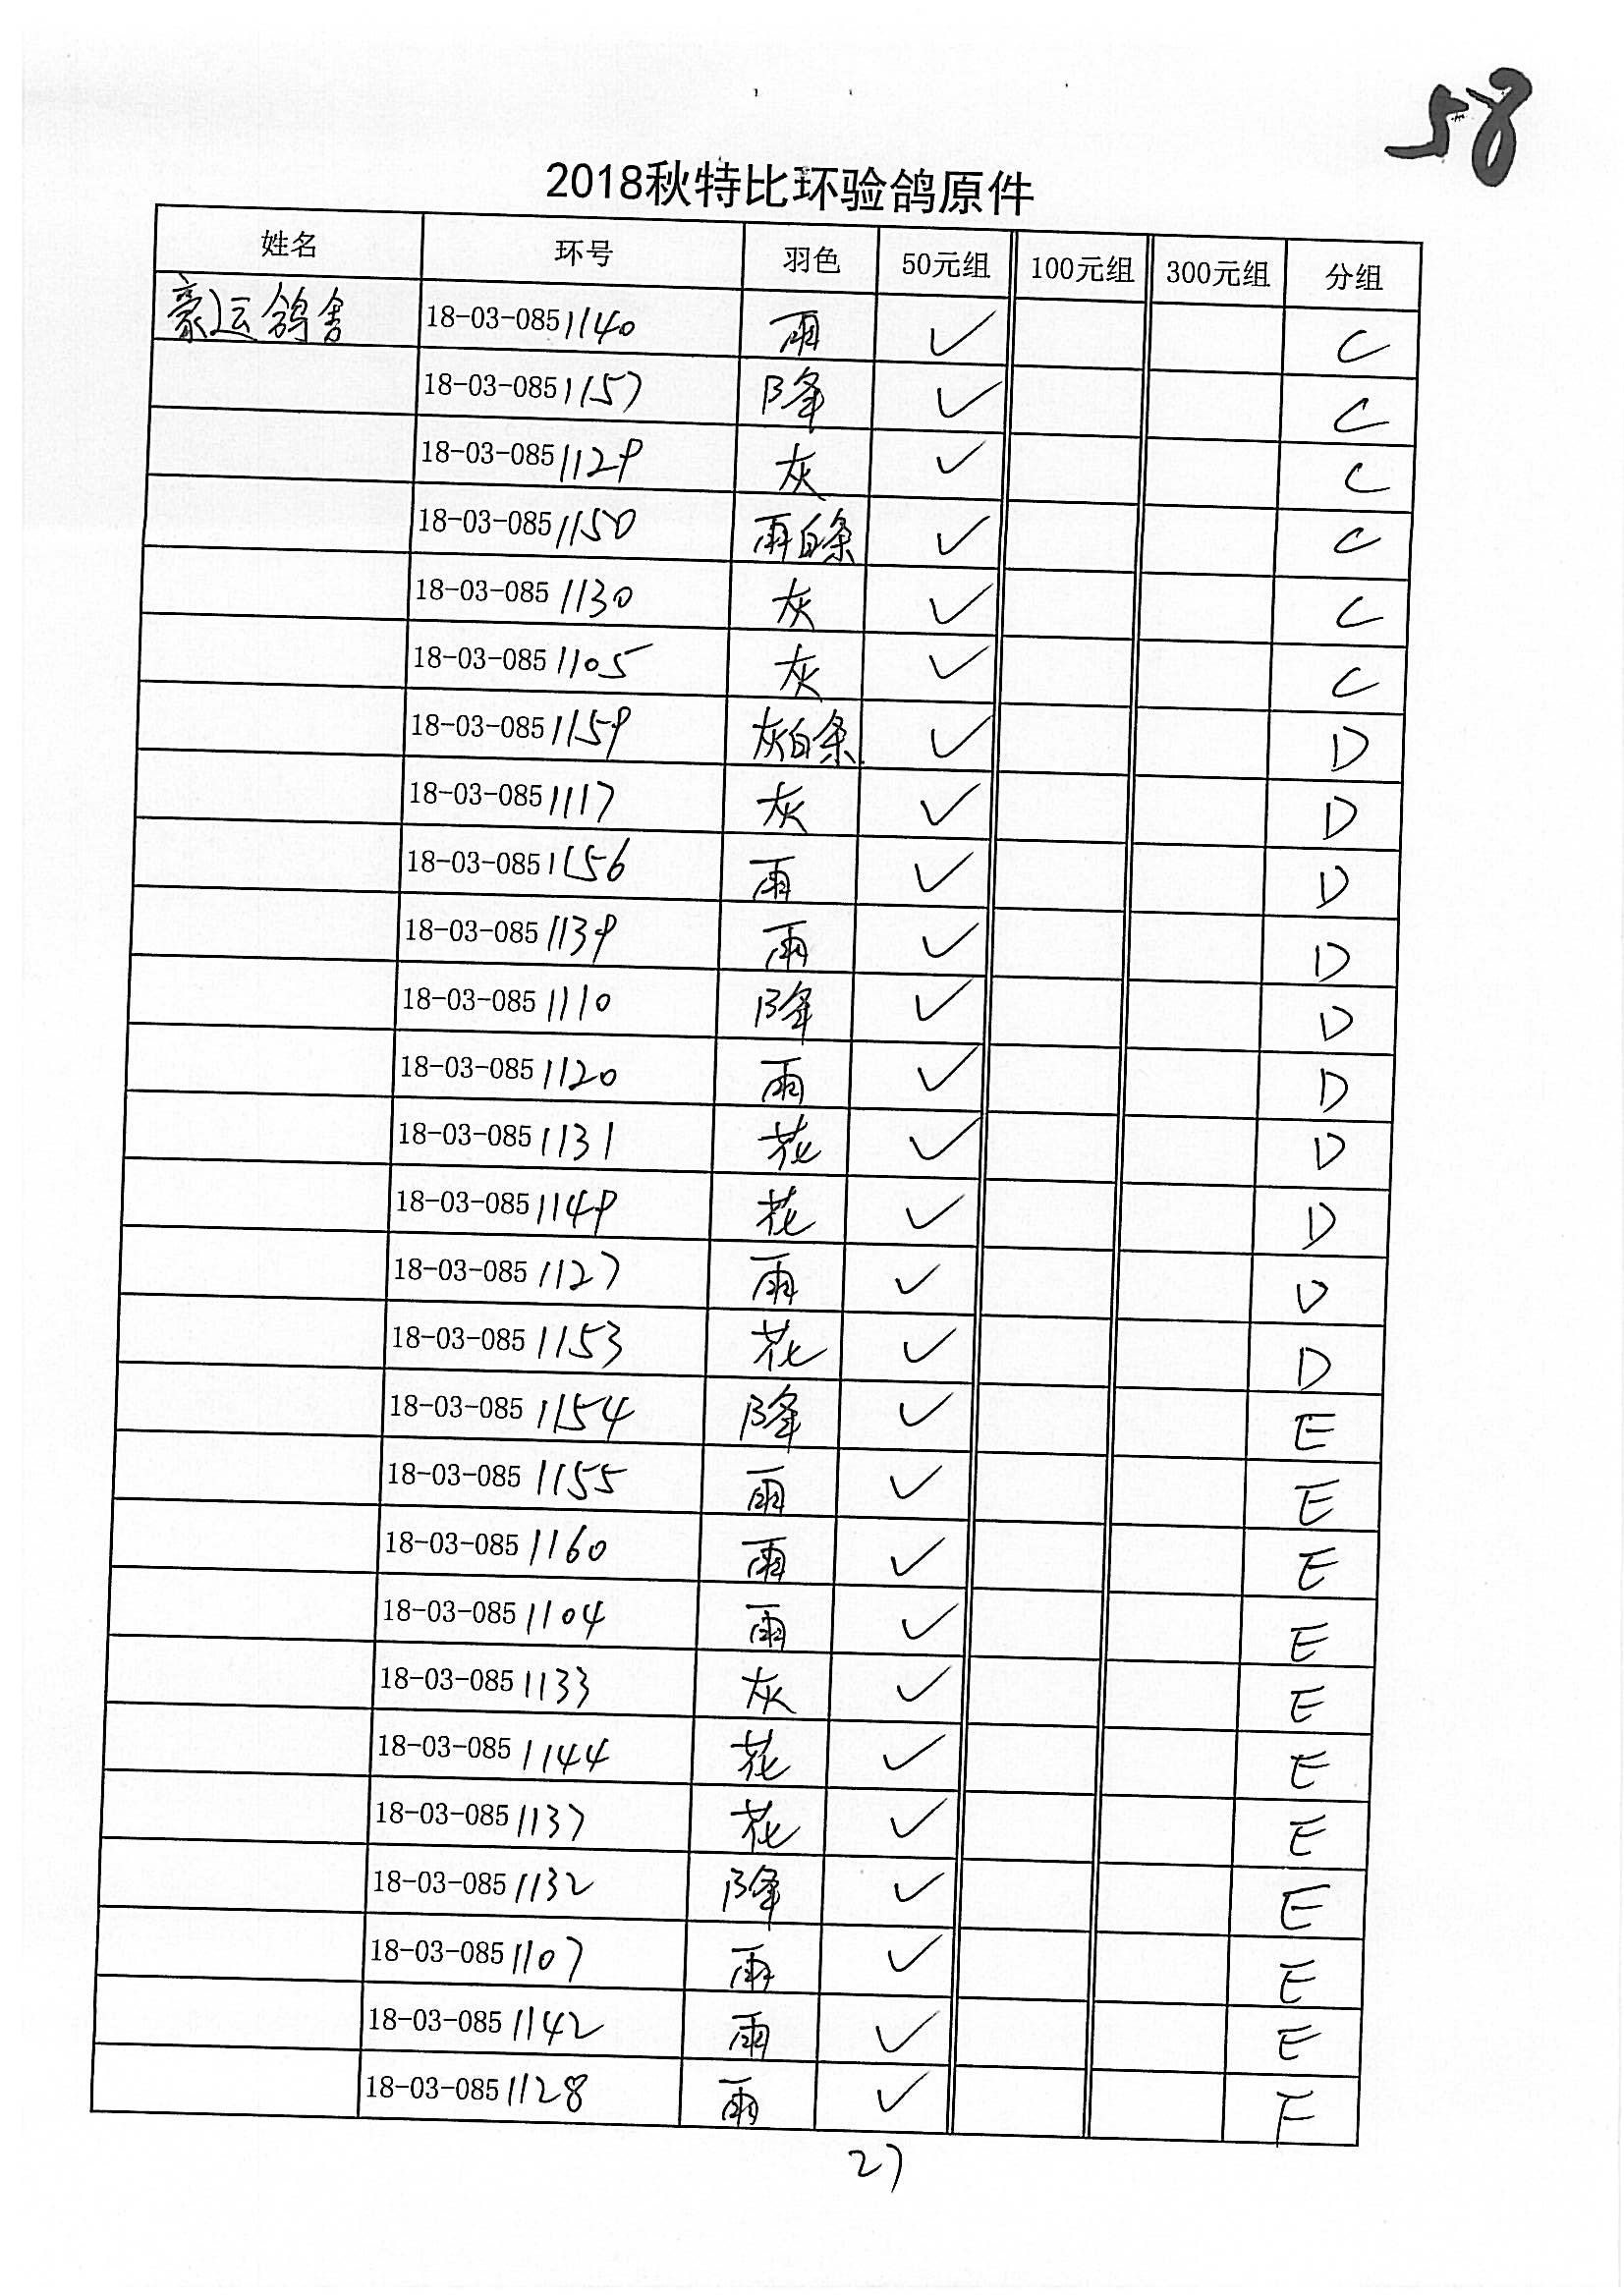 58
2018秋特比环验鸽原件
姓名 环号 羽色 50元组 100元组 300元组 分组
豪运鸽舍 18-03-0851140 雨 ✓ C
18-03-0851157 降 ✓ C
18-03-0851129 灰 ✓ C
18-03-0851150 雨白条 ✓ C
18-03-0851130 灰 ✓ C
18-03-0851105 灰 ✓ C
18-03-0851159 灰白条 ✓ D
18-03-0851117 灰 ✓ D
18-03-0851156 雨 ✓ D
18-03-0851139 雨 ✓ D
18-03-0851110 降 ✓ D
18-03-0851120 雨 ✓ D
18-03-0851131 花 ✓ D
18-03-0851149 花 ✓ D
18-03-0851127 雨 ✓ D
18-03-0851153 花 ✓ D
18-03-0851154 降 ✓ E
18-03-0851155 雨 ✓ E
18-03-0851160 雨 ✓ E
18-03-0851104 雨 ✓ E
18-03-0851133 灰 ✓ E
18-03-0851144 花 ✓ E
18-03-0851137 花 ✓ E
18-03-0851132 降 ✓ E
18-03-0851107 雨 ✓ E
18-03-0851142 雨 ✓ E
18-03-0851128 雨 ✓ F
27